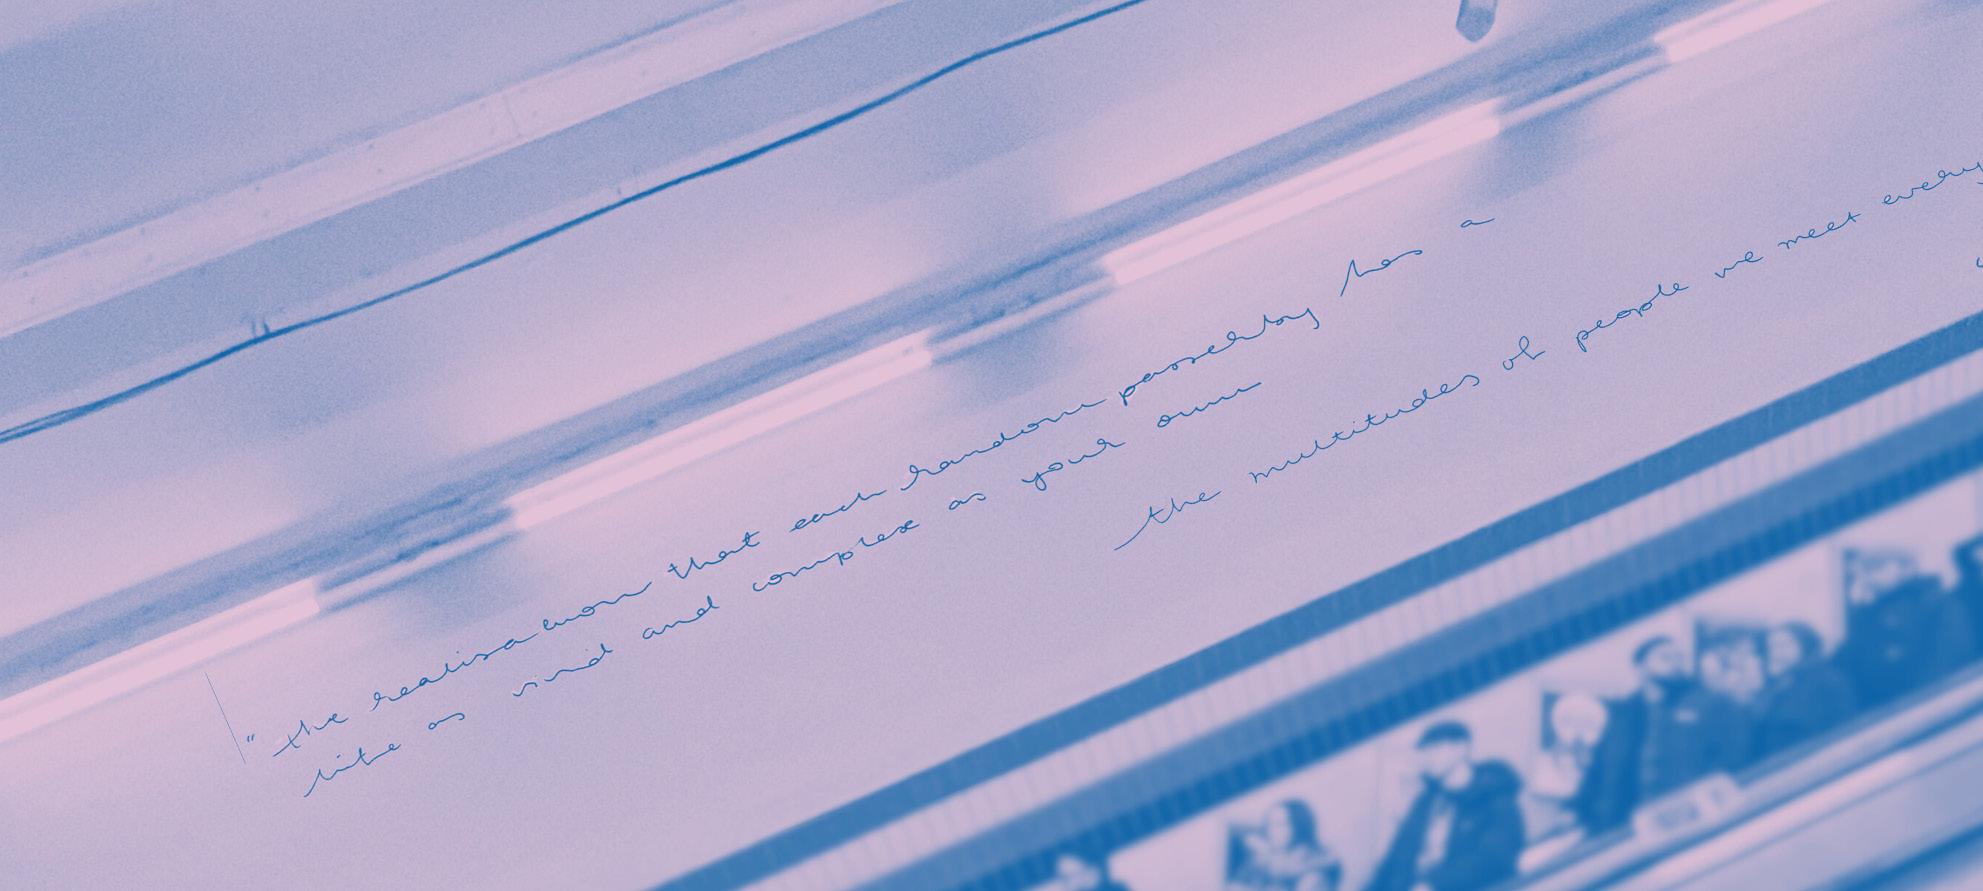 "the realisation that each random passerby has a
life as vivid and complex as your own
the multitudes of people we meet every